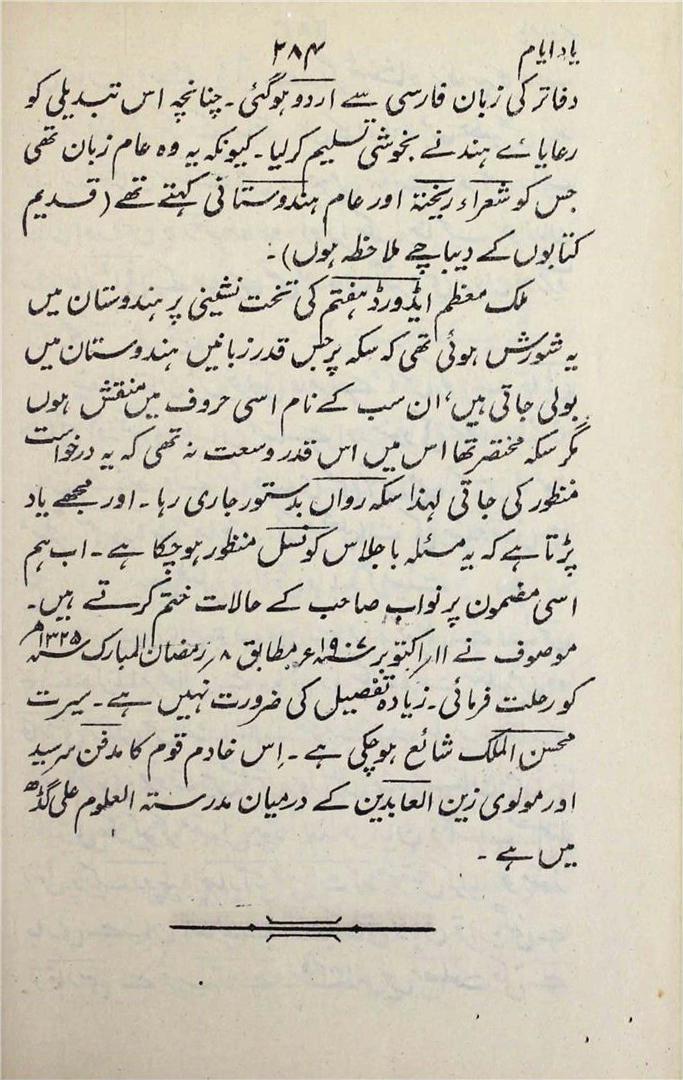 یاد ایام ۲۸۴
دفاتر کی زبان فارسی سے اردو ہوگئی۔ چنانچہ اس تبدیلی کو
رعایائے ہند نے بخوشی تسلیم کرلیا۔ کیونکہ یہ وہ عام زبان تھی
جس کو شعراء ریختہ اور عام ہندوستانی کہتے تھے (قدیم
کتابوں کے دیباچے ملاحظہ ہوں)۔
ملک معظم ایڈورڈ ہفتم کی تخت نشینی پر ہندوستان میں
یہ شورش ہوئی تھی کہ سکہ پر جس قدر زبانیں ہندوستان میں
بولی جاتی ہیں، ان سب کے نام اسی حروف میں منقش ہوں
مگر سکہ مختصر تھا اس میں اس قدر وسعت نہ تھی کہ یہ درخواست
منظور کی جاتی لہذا سکہ رواں بدستور جاری رہا۔ اور مجھے یاد
پڑتا ہے کہ یہ مسئلہ باجلاس کونسل منظور ہوچکا ہے۔ اب ہم
اسی مضمون پر نواب صاحب کے حالات ختم کرتے ہیں۔
موصوف نے ۱۱/اکتوبر ۱۹۰۷ء مطابق ۸/رمضان المبارک ۱۳۲۵ھ
کو رحلت فرمائی۔ زیادہ تفصیل کی ضرورت نہیں ہے۔ سیرت
محسن الملک شائع ہوچکی ہے۔ اِس خادم قوم کا مدفن سرسید
اور مولوی زین العابدین کے درمیان مدرستہ العلوم علی گڈھ
میں ہے۔